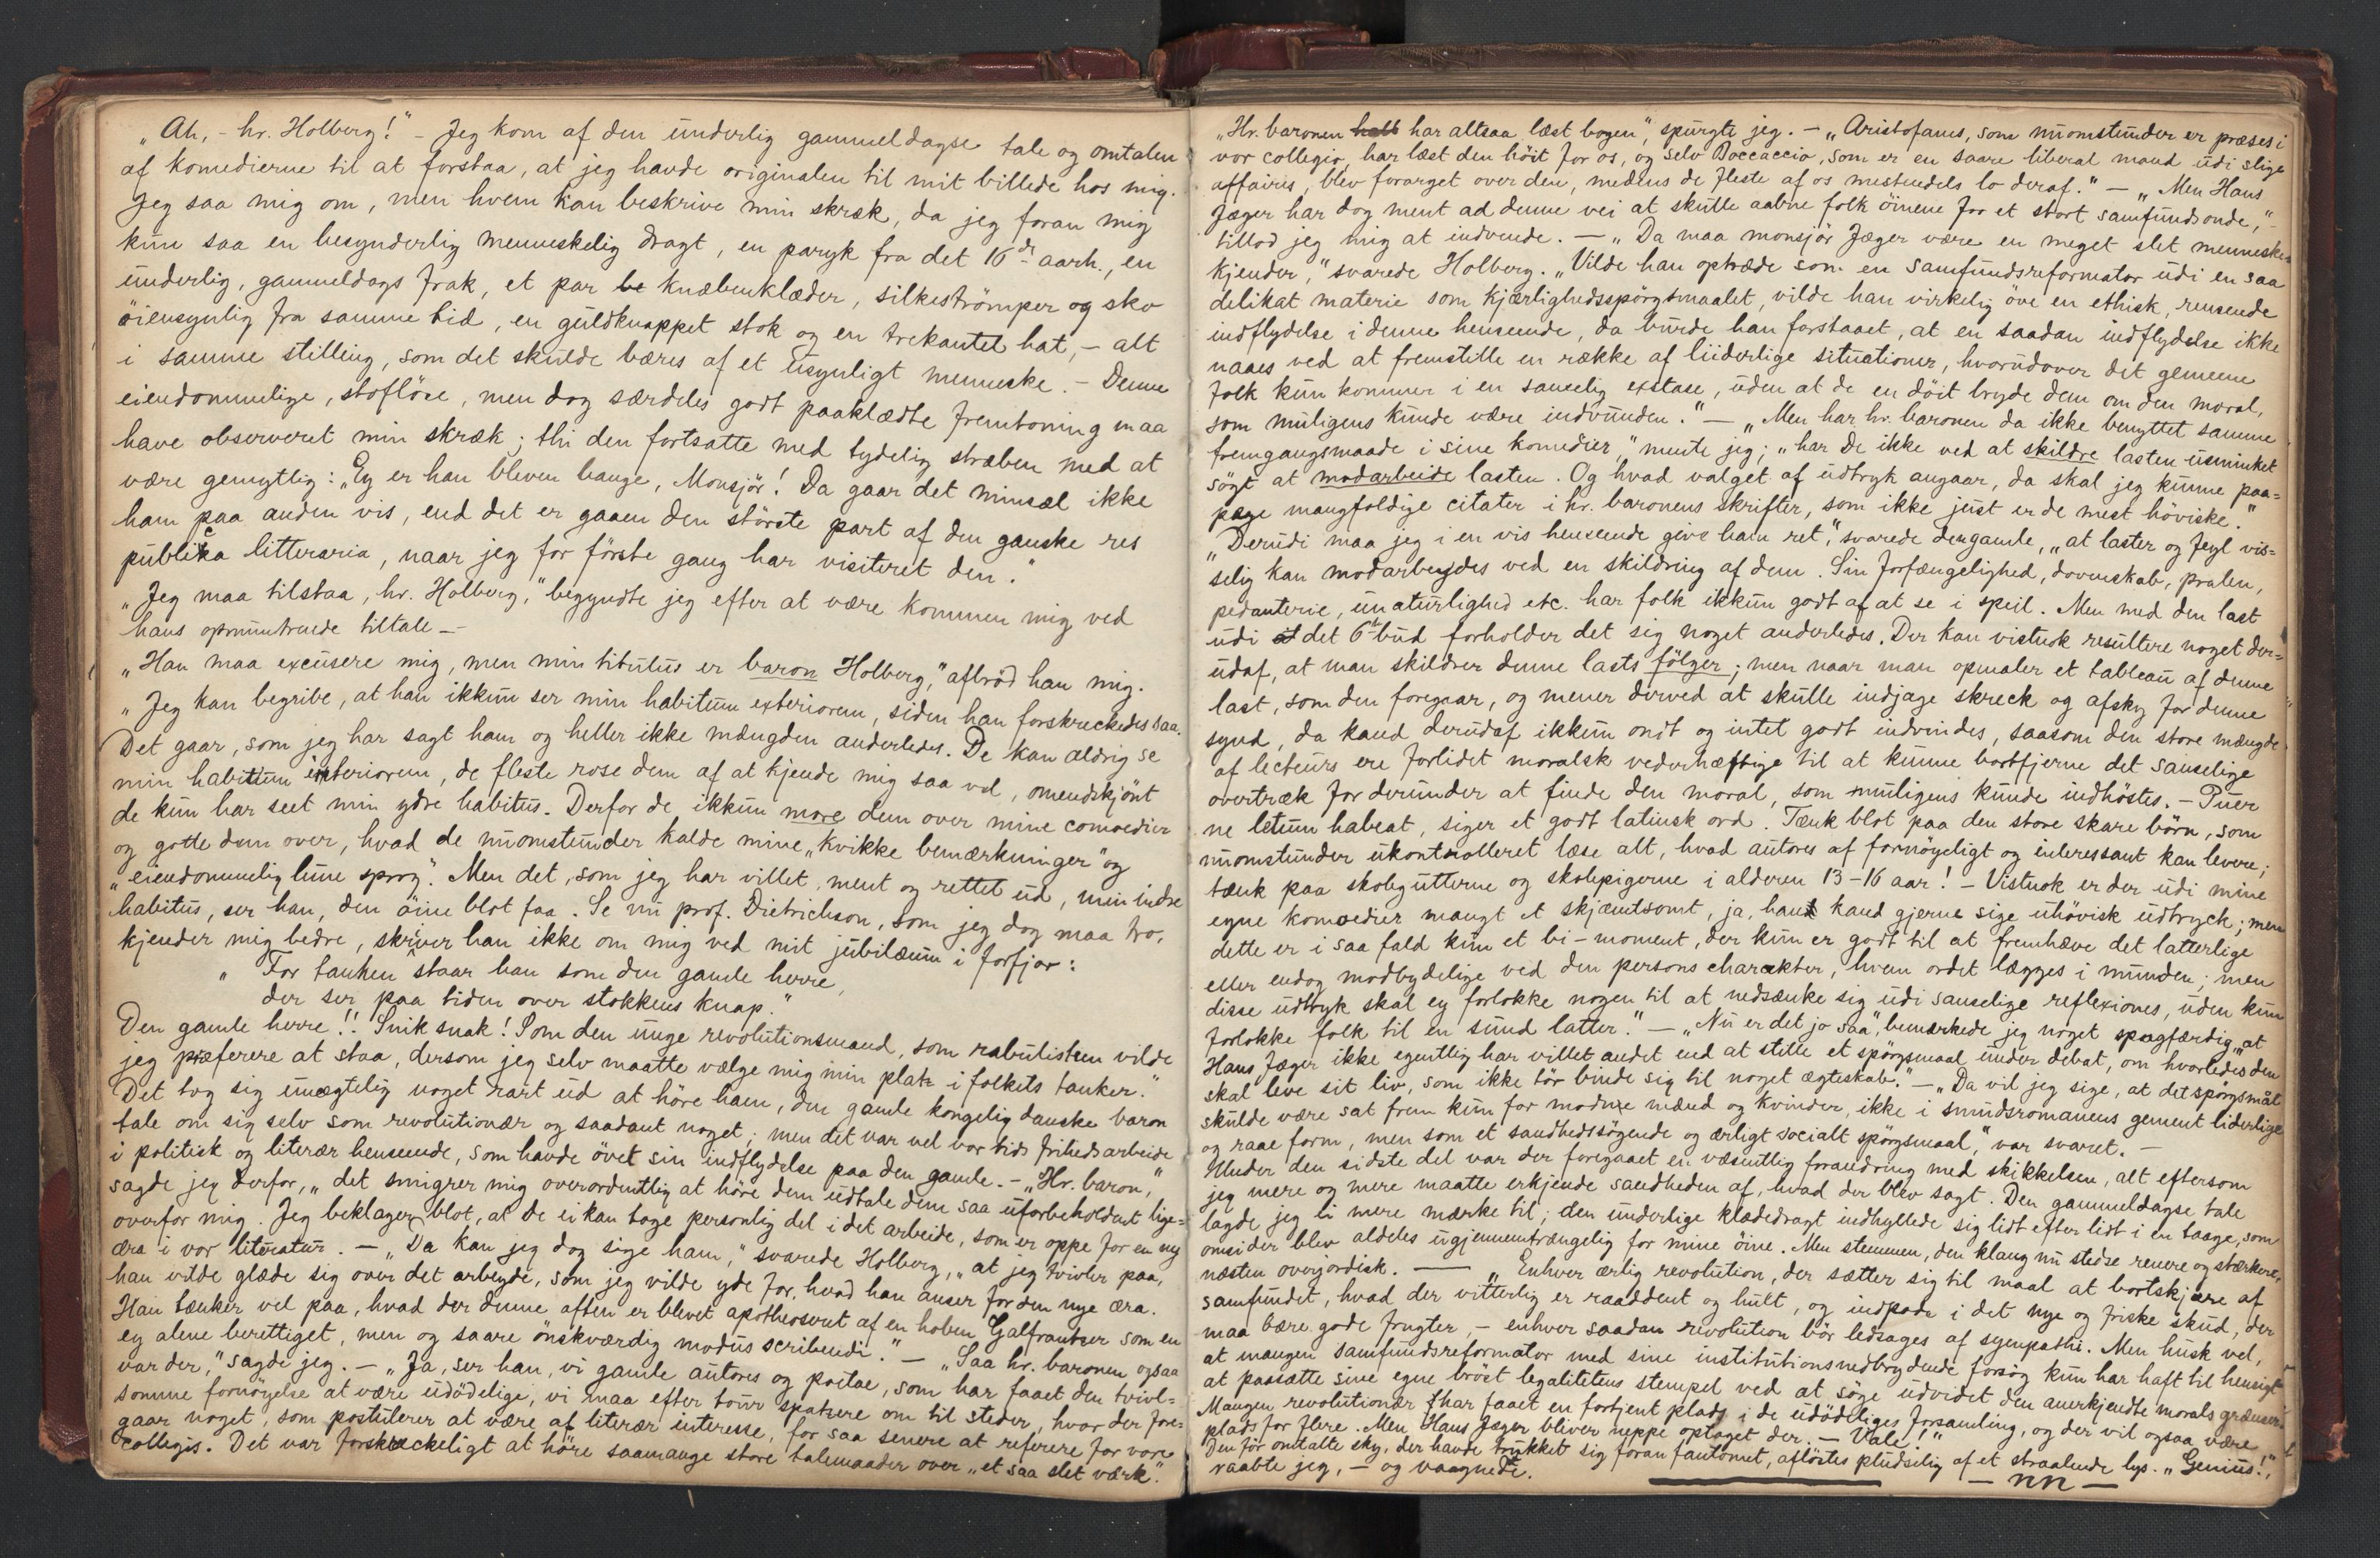 „Ah, - hr. Holberg!" - Jeg kom af den underlig gammeldagse tale og omtalen
af komedierne til at forstaa, at jeg havde originalen til mit billede hos mig.
Jeg saa mig om, men hvem kan beskrive min skræk, da jeg foran mig
kun saa en besynderlig menneskelig dragt, en paryk fra det 16de aarh., en
underlig, gammeldags frak, et par be knæbenklæder, silkeströmper og sko
öiensynlig fra samme tid, en guldknappet stok og en trekantet hat, - alt
i samme stilling, som det skulde bæres af et usynligt menneske. - Denne
eiendommelige, stoflöse, men dog særdeles godt paaklædte fremtoning maa
have observeret min skræk; thi den fortsatte med tydelig stræben med at
være gemytlig: „Ey er han bleven bange, Monsjör! Da gaar det minsæl ikke
ham paa anden vis, end det er gaaen den störste part af den ganske res
publica litteraria, naar jeg for förste gang har visiteret den."
„Jeg maa tilstaa, hr. Holberg," begyndte jeg efter at være kommen mig ved
hans opmuntrende tiltale —
„Han maa excusere mig, men min titulus er baron Holberg," afbröd han mig.
„Jeg kan begribe, at han ikkun ser min habitum exteriorem, siden han forskreckedes saa.
Det gaar, som jeg har sagt ham og heller ikke mængden anderledes. De kan aldrig se
min habitum interiorem, de fleste rose dem af at kjende mig saa vel, omendskjönt
de kun har seet min ydre habitus. Derfor de ikkun more dem over mine comoedier
og gotte dem over, hvad de nuomstunder kalde mine „kvikke bemærkninger" og
„eiendommelig lune sprog". Men det, som jeg har villet, ment og rettet ud, min indre
habitus, ser han, den öine blot faa. Se nu prof. Dietrichson, som jeg dog maa tro,
kjender mig bedre, skriver han ikke om mig ved mit jubilæum i forfjor:
„For tanken staar han som den gamle herre,
der ser paa tiden over stokkens knap."
Den gamle herre!! Snik snak! Som den unge revolutionsmand, som rabulisten vilde
jeg præferere at staa, dersom jeg selv maatte vælge mig min plats i folkets tanker."
Det tog sig unægtelig noget rart ud at höre ham, den gamle kongelig danske baron
tale om sig selv som revolutionær og saadant noget; men det var vel vor tids frihedsarbeide
i politisk og literær henseende, som havde övet sin indflydelse paa den gamle. - „Hr. baron,"
sagde jeg derfor, „det smigrer mig overordentlig at höre dem udtale dem saa uforbeholdent lige=
overfor mig. Jeg beklager blot, at de ei kan tage personlig del i det arbeide, som er oppe for en ny
æra i vor literatur. — „Da kan jeg dog sige ham," svarede Holberg, „at jeg tvivler paa,
han vilde glæde sig over det arbeyde, som jeg vilde yde for, hvad han anser for den nye æra.
Han tænker vel paa, hvad der denne aften er blevet apotheoseret af en hoben Galfrantser som en
ey alene berettiget, men og saare önskværdig modus scribendi." — „Saa hr. baronen ogsaa
var der," sagde jeg. — „Ja, ser han, vi gamle autores og poetae, som har faaet den tvivl=
somme fornöyelse at være udödelige, vi maa efter tour spatsere om til steder, hvor der fore=
gaar noget, som postulerer at være af literær interesse, for saa senere at referere for vore
collegis. Det var forskreckeligt at höre saamange store talemaader over „et saa slet værk".
„Hr. baronen har altsaa læst bogen", spurgte jeg. - „Aristofanes, som nuomstunder er præses i
vor collegio, har læst den höit for os, og selv Boccaccio, som er en saare liberal mand udi slige
affaires, blev forarget over den, medens de fleste af os mestendels lo deraf." — „Men Hans
Jæger har dog ment ad denne vei at skulle aabne folk öinene for et stort samfundsonde,"-
tillod jeg mig at indvende. — „Da maa monsjör Jæger være en meget slet menneske=
kjender," svarede Holberg. „Vilde han optræde som en samfundsreformator udi en saa
delikat materie som kjærlighedsspörgsmaalet, vilde han virkelig öve en ethisk, rensende
indflydelse i denne henseende, da burde han forstaaet, at en saadan indflydelse ikke
naaes ved at fremstille en række af liderlige situationer, hvorudover det gemene
folk kun kommer i en sanselig exstase, uden at de en döit bryde dem om den moral,
som muligens kunde være indvunden." — „Men har hr. baronen da ikke benyttet samme
fremgangsmaade i sine komedier," mente jeg; „har De ikke ved at skildre lasten usminket
sögt at modarbeide lasten. Og hvad valget af udtryk angaar, da skal jeg kunne paa=
pege mangfoldige citater i hr. baronens skrifter, som ikke just er de mest höviske."
„Derudi maa jeg i en vis henseende give ham ret", svarede den gamle, „at laster og feyl vis=
selig kan modarbeydes ved en skildring af dem. Sin forfængelighed, dovenskab, pralen,
pedanterie, unaturlighed etc. har folk ikkun godt af at se i speil. Men med den last
udi det 6te bud forholder det sig noget anderledes. Der kan vistnok resultere noget der=
udaf, at man skildrer denne lasts fölger; men naar man opmaler et tableau af denne
last, som den foregaar, og mener derved at skulle indjage skreck og afsky for denne
synd, da kand derudaf ikkun ondt og intet godt indvindes, saasom den store mængde
af lecteurs ere forlidet moralsk vederhæftige til at kunne bortfjerne det sanselige
overtræk for derunder at finde den moral, som muligens kunde indhöstes. - Puer
ne letum habeat, siger et godt latinsk ord. Tænk blot paa den store skare börn, som
nuomstunder ukontrolleret læse alt, hvad autores af fornöyeligt og interessant kan levere;
tænk paa skolegutterne og skolepigerne i alderen 13-16 aar! - Vistnok er der udi mine
egne komoedier mangt et skjæmtsomt, ja, hand kand gjerne sige uhövisk udtryck; men
dette er i saa fald kun et bi-moment, der kun er godt til at fremhæve det latterlige
eller endog modbydelige ved den persons charakter, hvem ordet lægges i munden; men
disse udtryk skal ey forlokke nogen til at nedsænke sig udi sanselige reflexiones, uden kun
forlokke folk til en sund latter." — „Nu er det jo saa", bemærkede jeg noget spagfærdig „at
Hans Jæger ikke egentlig har villet andet end at stille et spörgsmaal under debat, om hvorledes den
skal leve sit liv, som ikke tör binde sig til noget ægteskab." — „Da vil jeg sige, at det spörgsmål
skulde være sat frem kun for modne mænd og kvinder, ikke i smudsromanens gement liderlige
og raae form, men som et sandhedssögende og ærligt socialt spörgsmaal," var svaret. —
Under den sidste del var der foregaaet en væsentlig forandring med skikkelsen, alt eftersom
jeg mere og mere maatte erkjende sandheden af, hvad der blev sagt. Den gammeldagse tale
lagde jeg ei mere mærke til; den underlige klædedragt indhyllede sig lidt efter lidt i en taage, som
omsider blev aldeles ugjennemtrængelig for mine öine. Men stemmen, den klang nu stedse renere og stærkere,
næsten overjordisk. — „Enhver ærlig revolution, der sætter sig til maal at bortskjære af
samfundet, hvad der vitterlig er raaddent og hult, og indpode i det nye og friske skud, der
maa bære gode frugter, - enhver saadan revolution bör ledsages af sympathi. Men husk vel,
at mangen samfundsreformator med sine institutionsnedbrydende forsög kun har haft til hensigt
at paasætte sine egne bröst legalitetens stempel ved at söge udvidet den anerkjendte morals grænser.
Mangen revolutionær har faaet en fortjent plads i de udödeliges forsamling, og der vil ogsaa være
plads for flere. Men Hans Jæger bliver neppe optaget der. — Vale!"
Den för omtalte sky, der havde trukket sig foran fantomet, aflöstes pludselig af et straalende lys. „Genius!",
raabte jeg, - og vaagnede.
— nn —